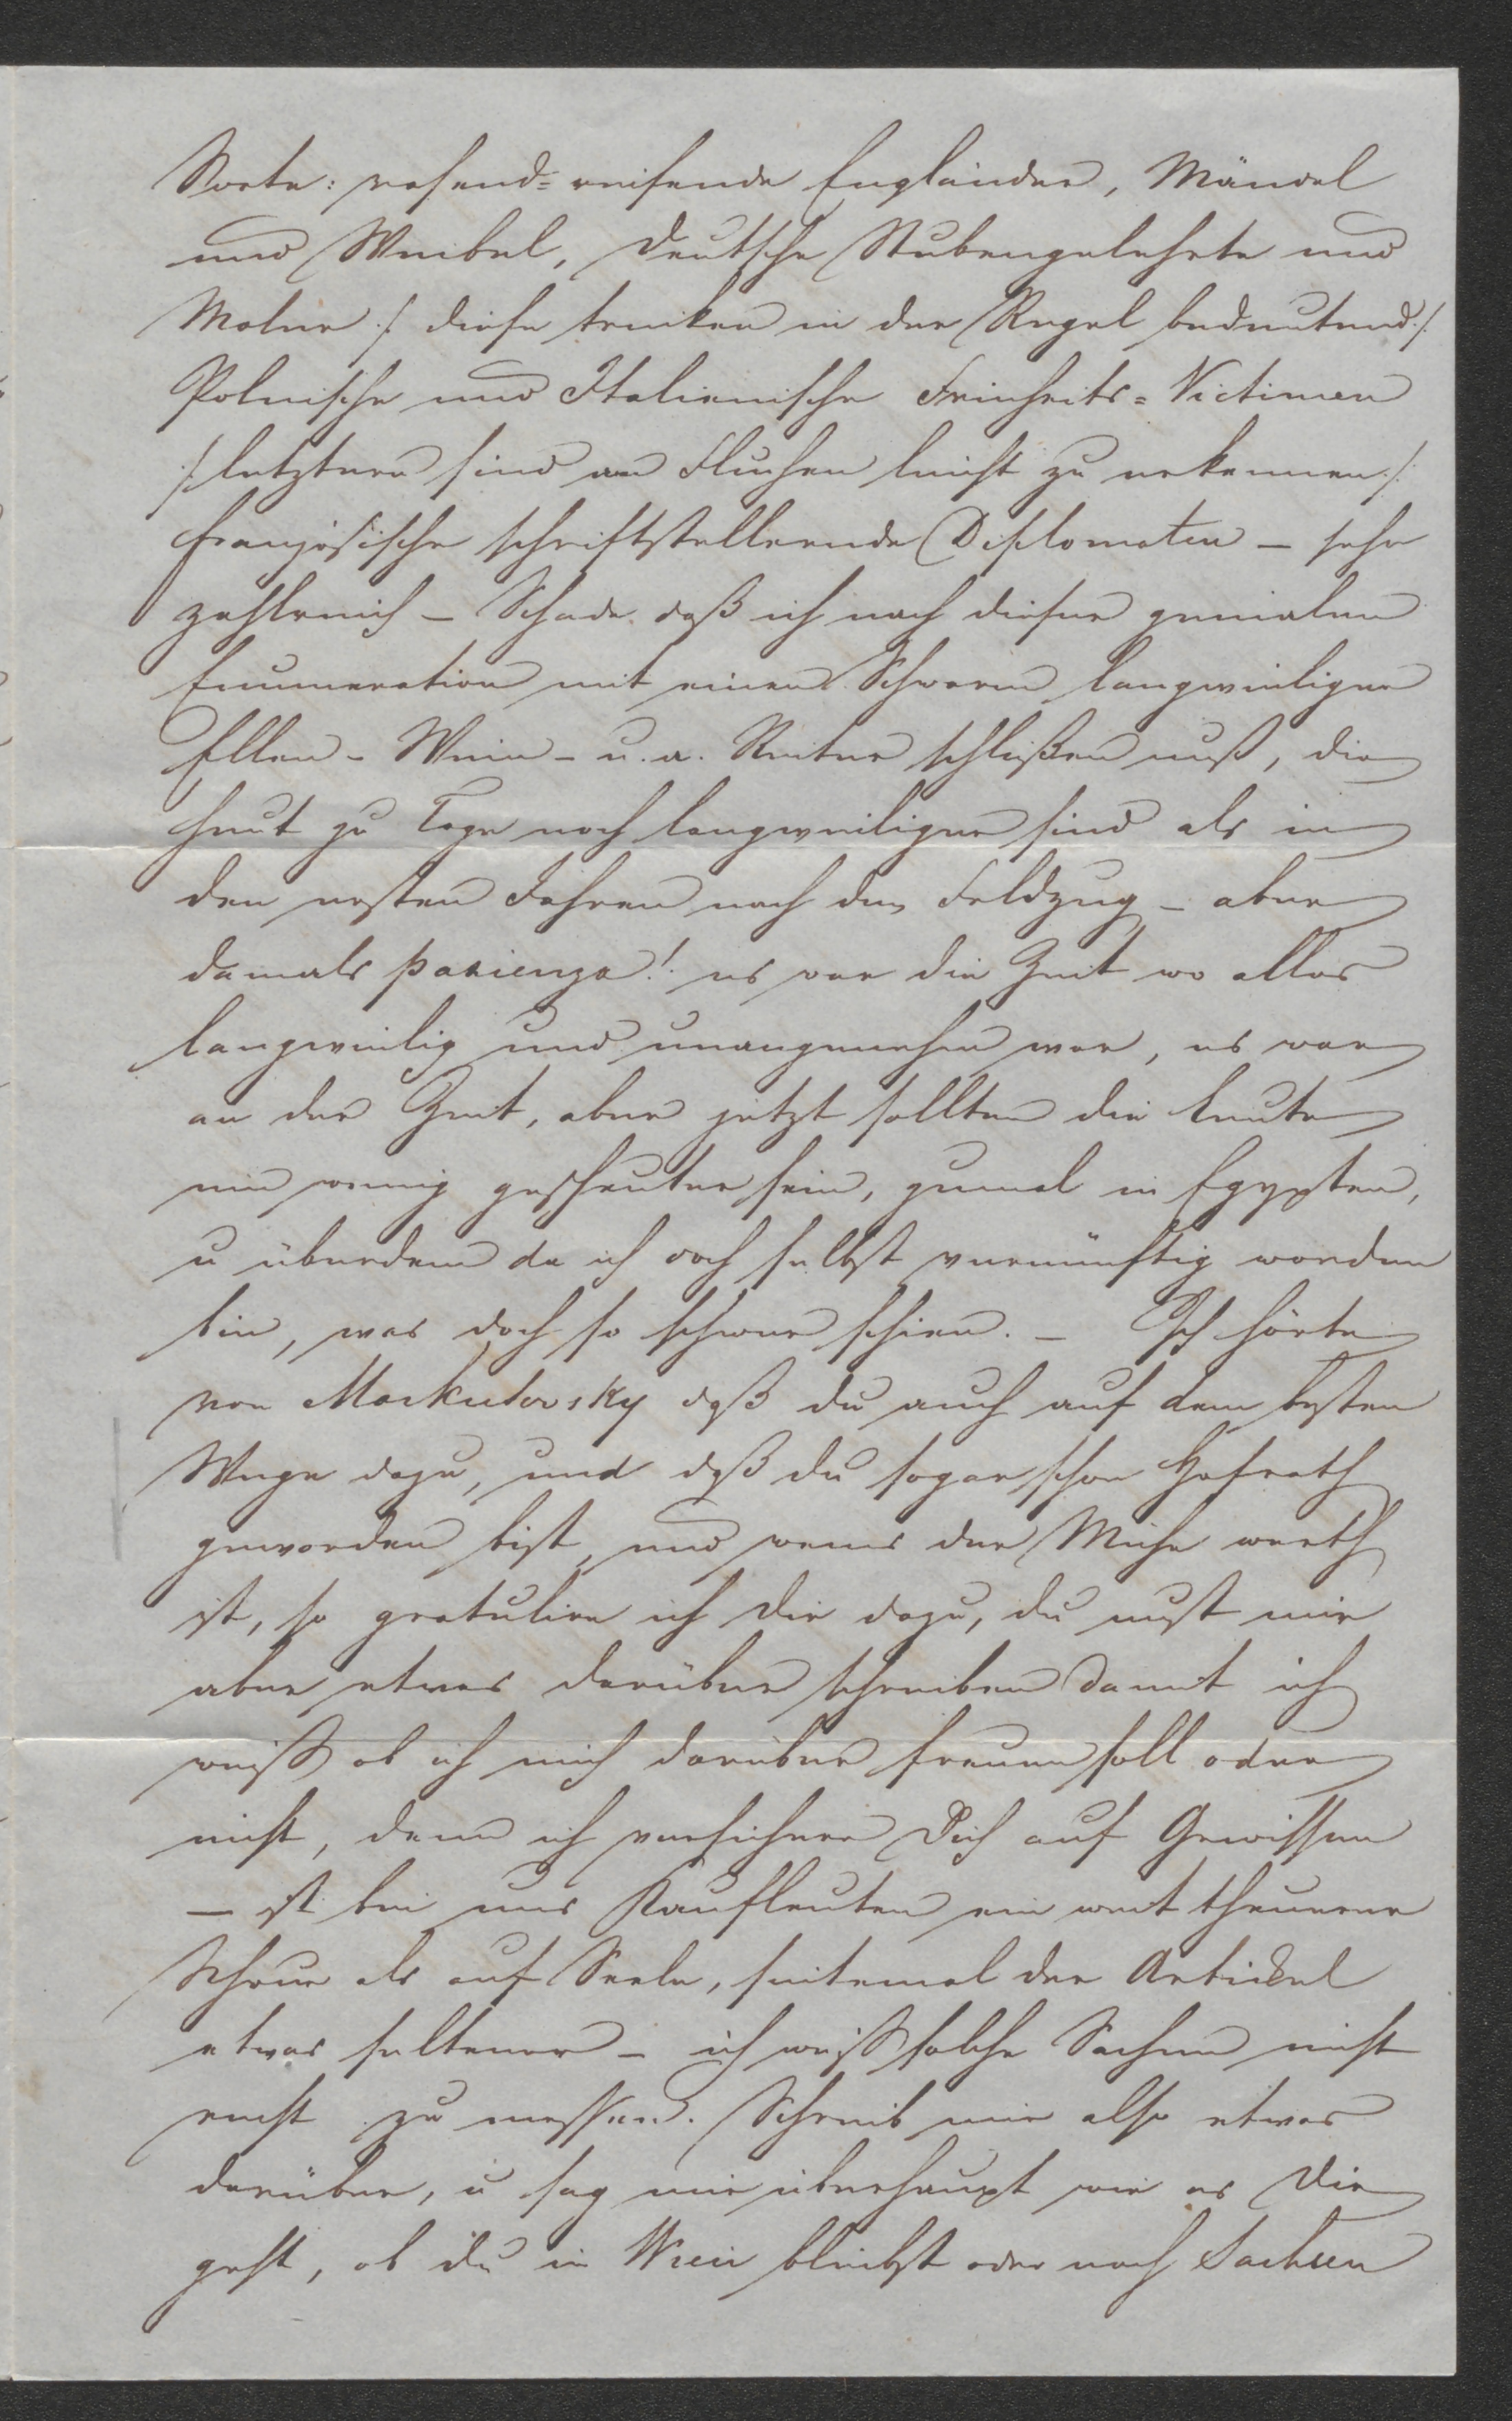 Sorte: rasend= reisende Engländer, Mändel
und Weibel, deutsche Stubengelehrte und
Maler /: diese trinken in der Regel bedeutend :/
Polnische und Italienische Freiheits=Victimen
/: letztere sind am Fluchen leicht zu erkennen :/
französische schriftstellernde Diplomaten – sehr
zahlreich – Schade daß ich nach dieser genialen
Enumeration mit einem Schwarm langweiliger
Ellen - Wein - u. a. Reiter schließen muß, die
heut zu Tage noch langweiliger sind als in
den ersten Jahren nach dem Feldzug – aber
damals pazienza! es war die Zeit wo alles
langweilig und unangenehm war, es war
an der Zeit, aber jetzt sollten die Leute
ein wenig gescheuter sein, zumal in Egypten,
u überdem da ich doch selbst vernünftig worden
bin, was doch so schwer schien. – Ich hörte
von Markusovsky daß du auch auf dem besten
Wege dazu, und daß du sogar schon Hofrath
geworden bist, und wenns der Mühe werth
ist, so gratulire ich dir dazu, du must mir
aber etwas darüber schreiben damit ich
weiß ob ich mich darüber freuen soll oder
nicht, denn ich versichere Dich auf Gewissen
– ist bei uns Kaufleuten ein weit theuerer
Schwur als auf Seele, sintemal der Artickel
etwas seltener – ich weiß solche Sachen nicht
recht zu messen. Schreib mir also etwas
darüber, u sag mir überhaupt wie es Dir
geht, ob du in Wien bleibst oder nach Sachsen